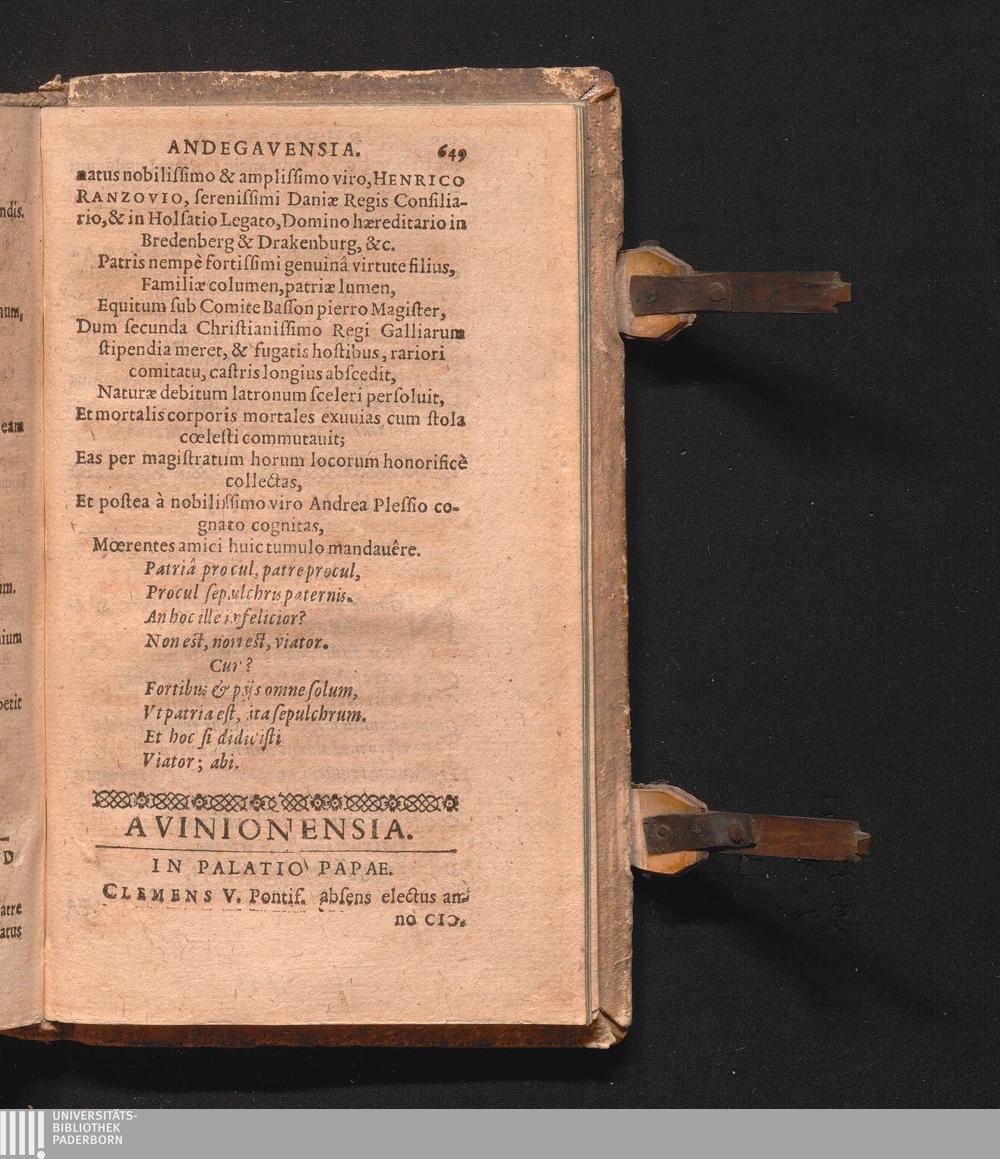 ndis.
num,
eam
um.
nium
petit
D
atre
atus
ANDEGAVENSIA. 649
natus nobiliſſimo & ampliſſimo viro, HENRICO
RANZOVIO, ſereniſſimi Daniæ Regis Conſilia-
rio, & in Holſatio Legato, Domino hæreditario in
Bredenberg & Drakenburg, &c.
Patris nempè fortiſſimi genuinâ virtute filius,
Familiæ columen, patriæ lumen,
Equitum ſub Comite Baſſon pierro Magiſter,
Dum ſecunda Chriſtianiſſimo Regi Galliarum
ſtipendia meret, & fugatis hoſtibus, rariori
comitatu, caſtris longius abſcedit,
Naturæ debitum latronum ſceleri perſoluit,
Et mortalis corporis mortales exuuias cum ſtola
cœleſti commutauit;
Eas per magiſtratum horum locorum honorificè
collectas,
Et poſtea à nobiliſſimo viro Andrea Pleſſio co-
gnato cognitas,
Mœrentes amici huic tumulo mandauêre.
Patriâ procul, patre procul,
Procul ſepulchris paternis.
An hoc ille infelicior?
Non eſt, non eſt, viator.
Cur?
Fortibus & pijs omne ſolum,
Vt patria eſt, ita ſepulchrum.
Et hoc ſi didiciſti
Viator; abi.
AVINIONENSIA.
IN PALATIO PAPAE.
CLEMENS V. Pontif. abſens electus an-
no CIↃ.
UNIVERSITÄTS-
BIBLIOTHEK
PADERBORN